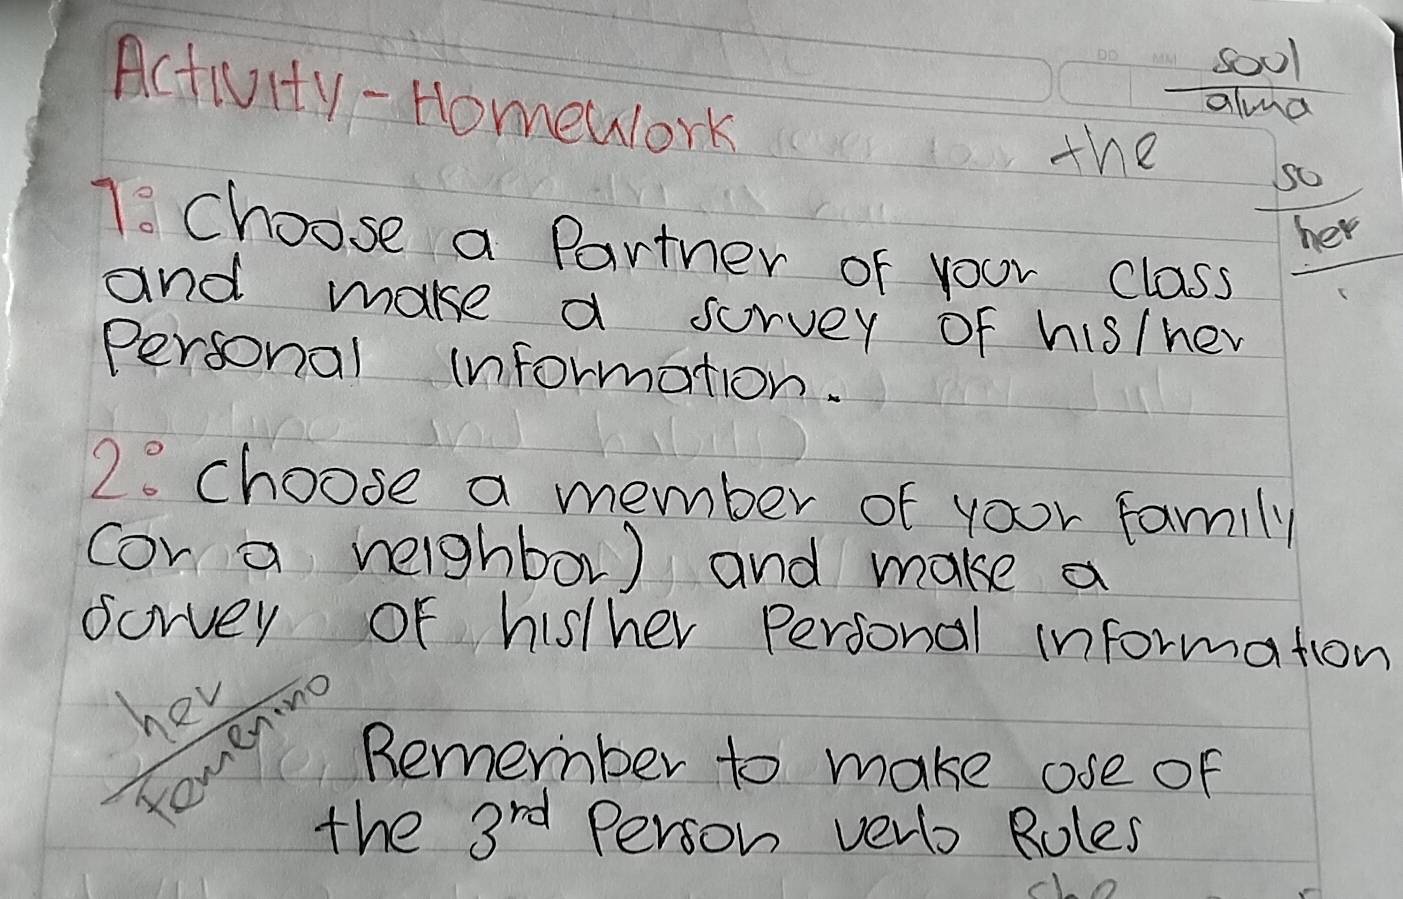 soul
alma
Activity - Homework
the
so
her
1: Choose a Partner of your class
and make a survey of his/her
Personal information.
2: Choose a member of your family
(or a neighbor) and make a
survey of his/her Personal information
her
Femenino
Remember to make use of
the 3rd Person verb Rules
she